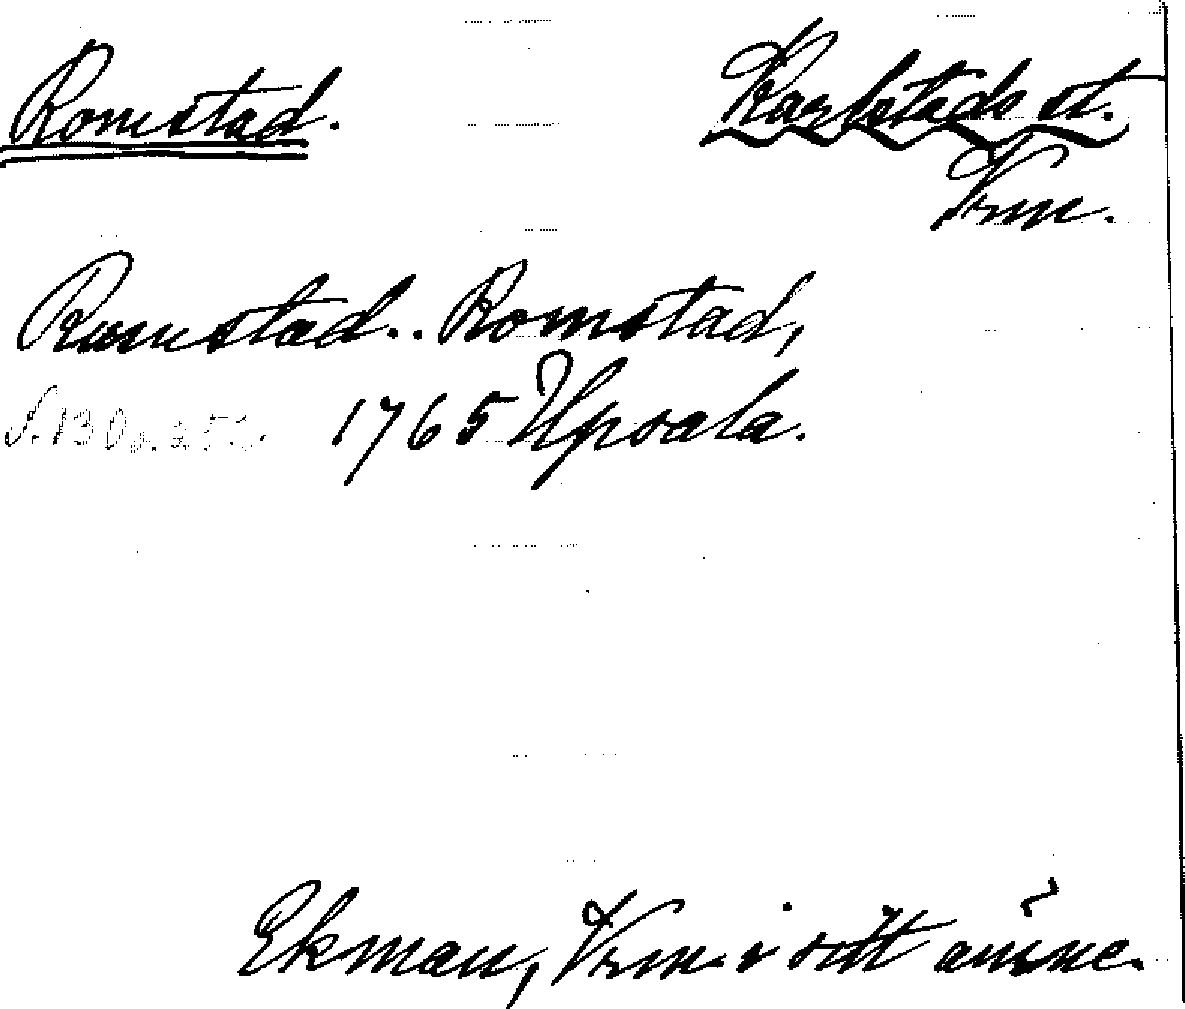 Romstad. Karlstads st.
Vrm.
Rumstad.. Romstad,
s. 130 1765 Upsala.
Ekman, Vrm. i sitt ämne.